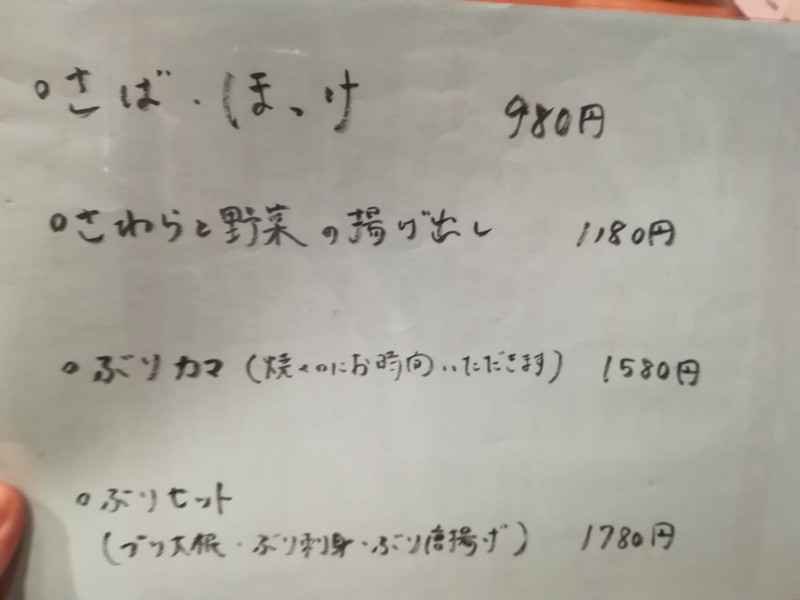 ○さば・ほっけ 980円
○さわらと野菜の揚げ出し 1180円
○ぶりカマ(焼くのにお時間いただきます) 1580円
○ぶりセット
(ブリ大根・ぶり刺身・ぶり唐揚げ) 1780円